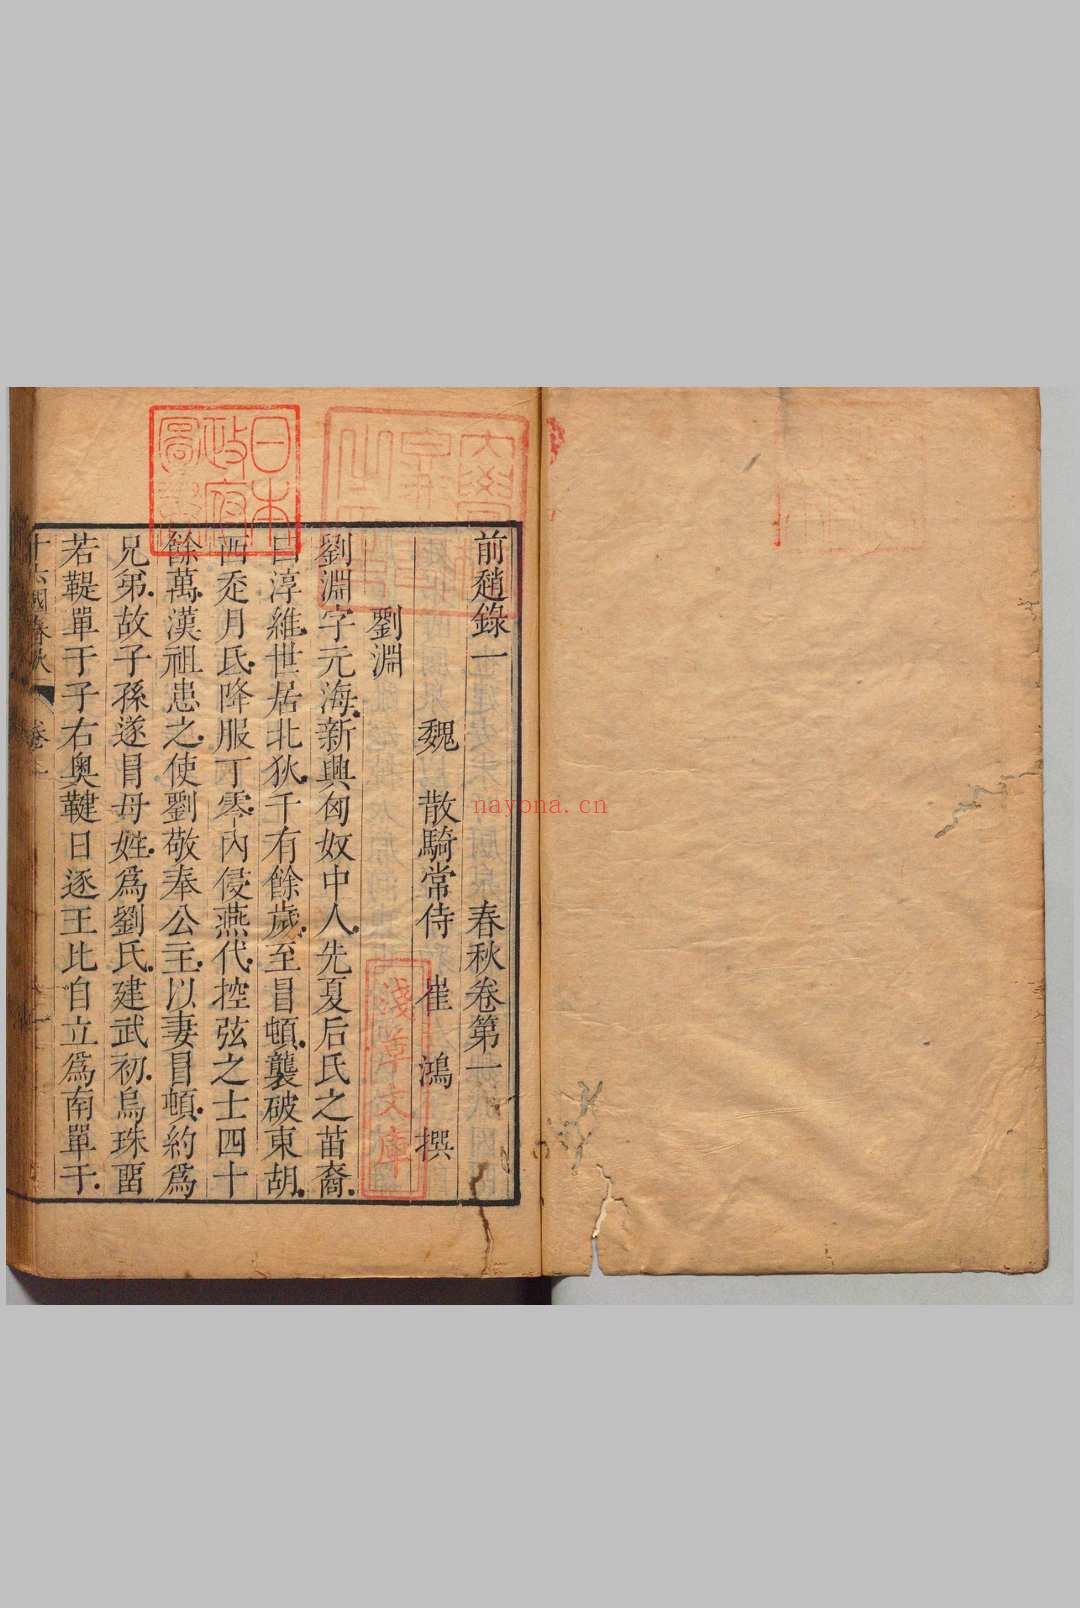 前趙錄一 春秋卷第一
魏 散騎常侍 崔 鴻 撰
劉淵
劉淵字元海新興匈奴中人先夏后氏之苗裔
曰淳維世居北狄千有餘歲至冒頓襲破東胡
西走月氏降服丁零內侵燕代控弦之士四十
餘萬漢祖患之使劉敬奉公主以妻冒頓約為
兄弟故子孫遂冒母姓為劉氏建武初烏珠留
若鞮單于子右奧鞬日逐王比自立為南單于
十六國春秋 卷一
日本政府圖書
淺草文庫
nayona.cn